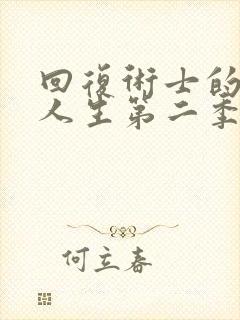 回復術士的
人生第二季
何立春